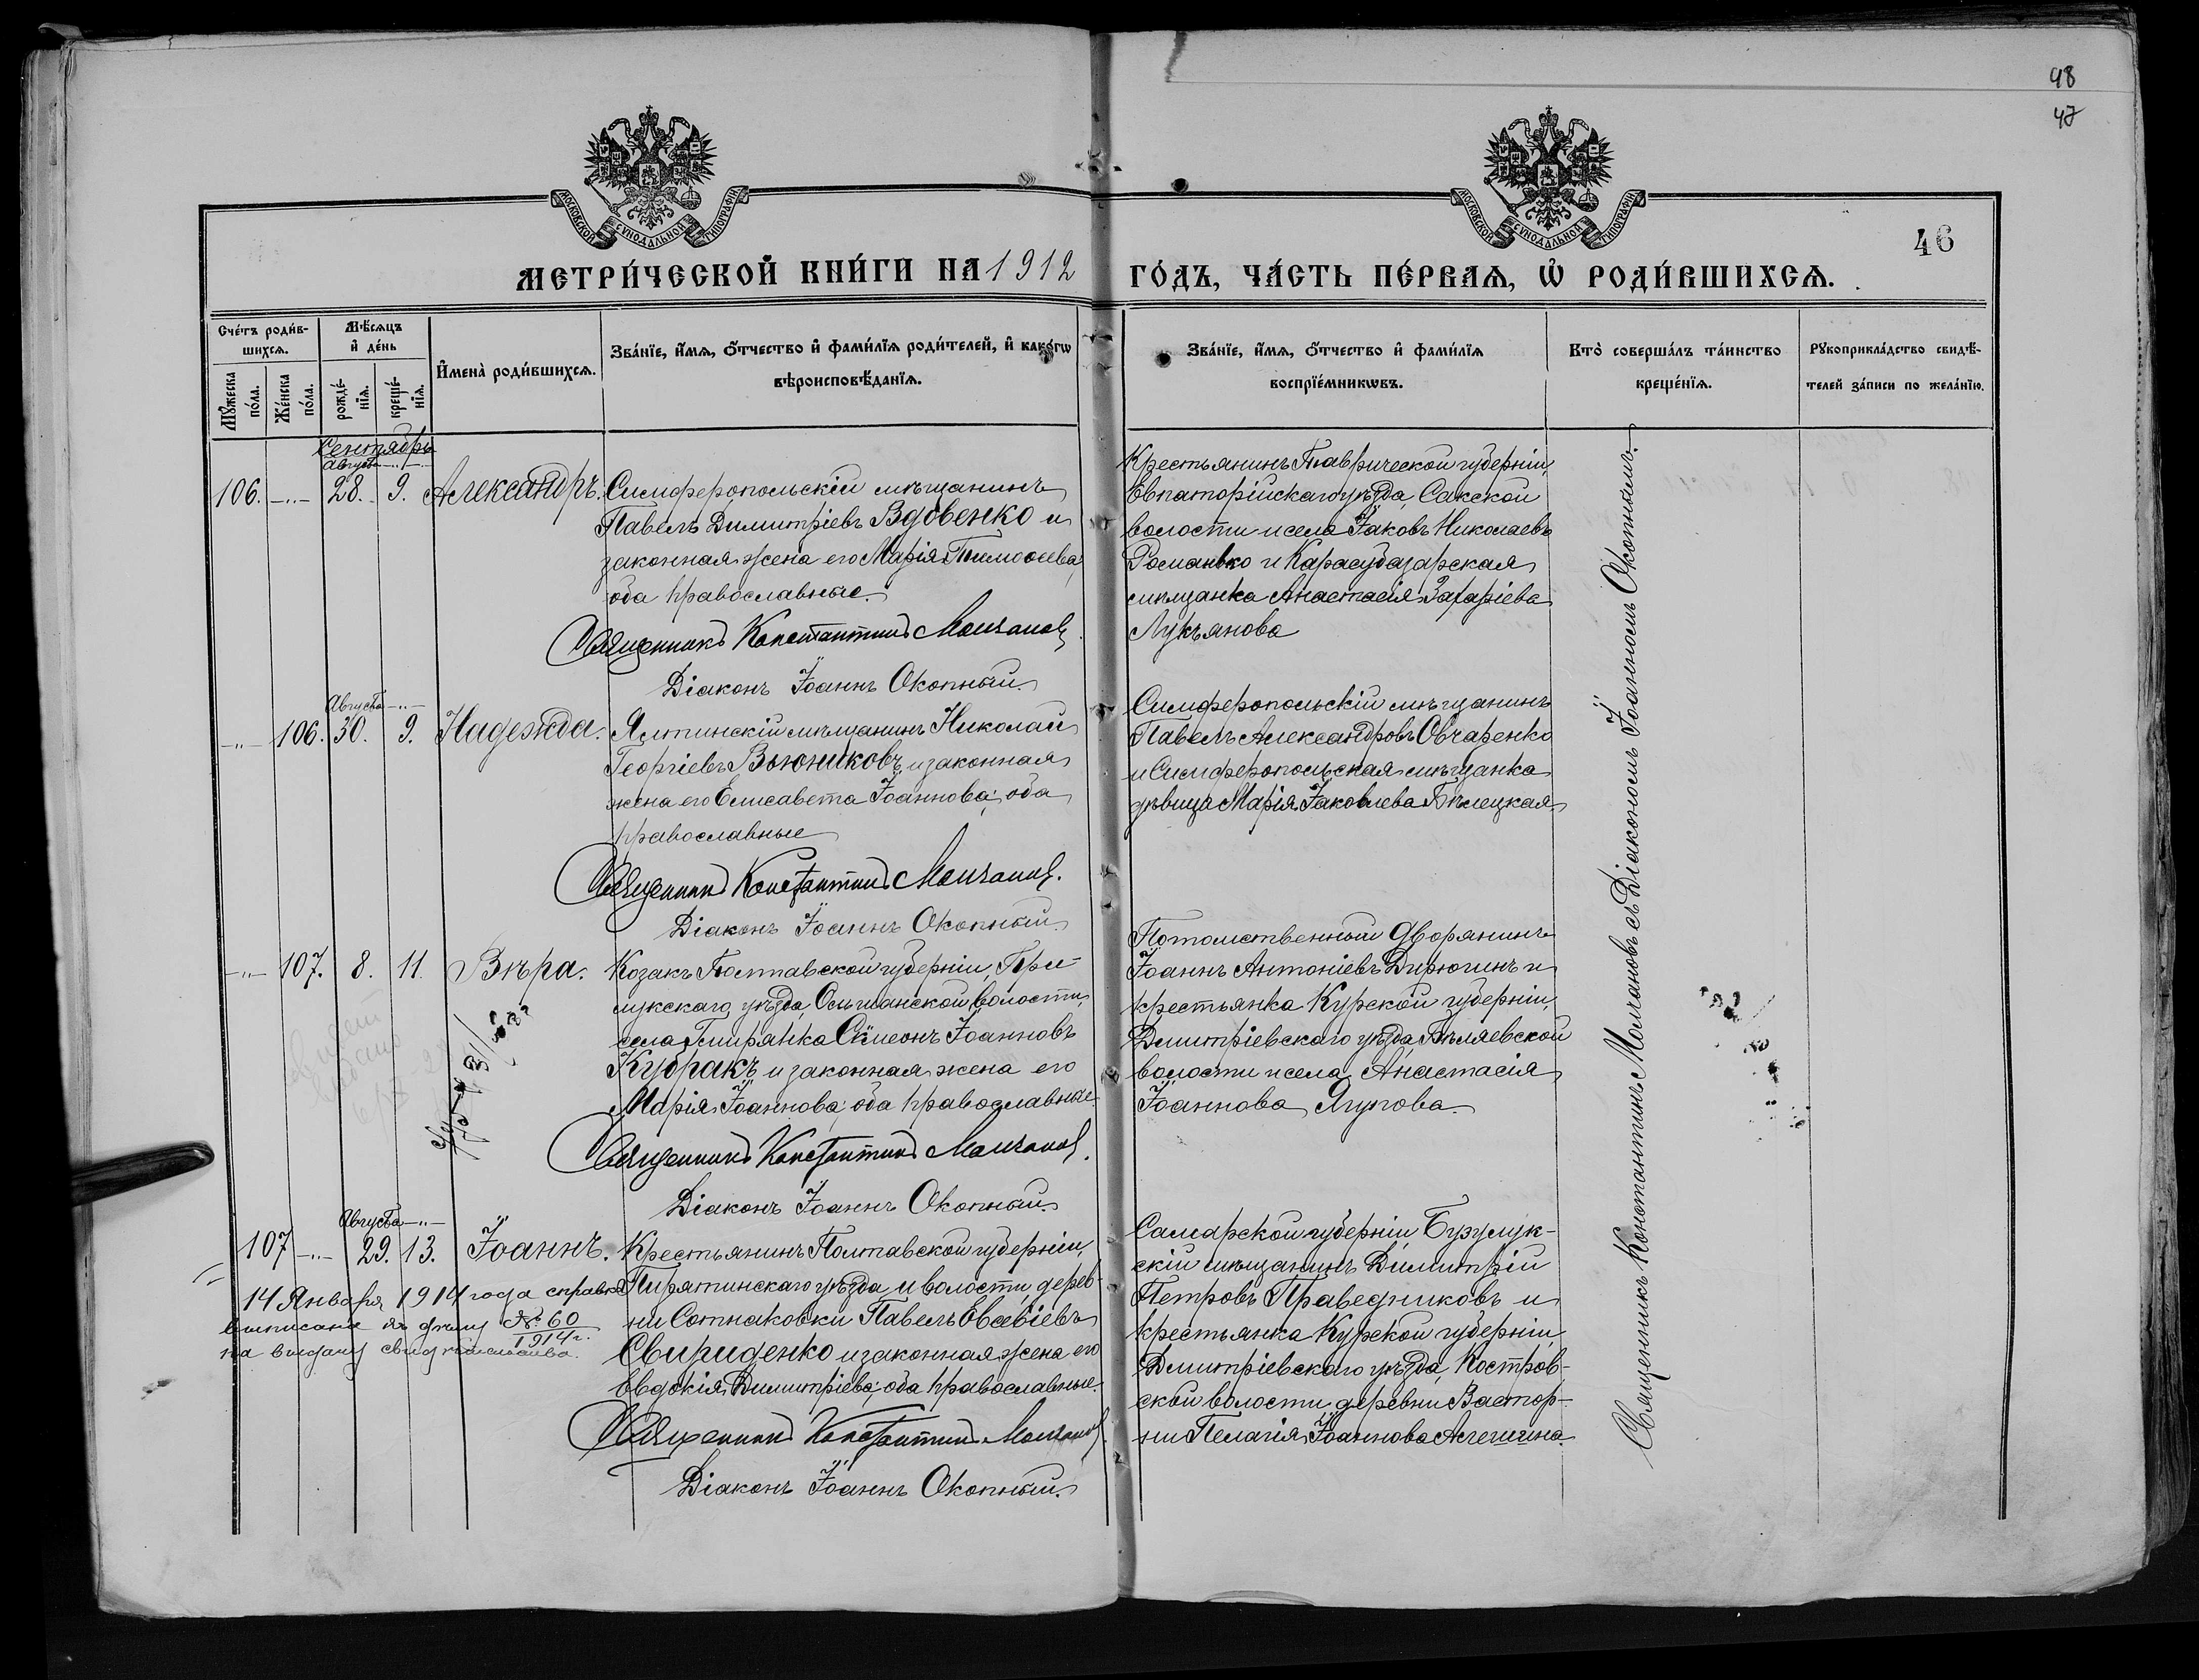 48
47
46
МОСКОВСКОЙ СУНОДАЛЬНОЙ ТИПОГРАФІИ
МОСКОВСКОЙ СУНОДАЛЬНОЙ ТИПОГРАФІИ
МЕТРИ́ЧЕСКОЙ КНИ́ГИ НА 1912 ГО́ДЪ, ЧА́СТЬ ПЕ́РВАѦ, Ѿ РОДИ́ВШИХСѦ.
Сче́тъ роди́в-
шихсѧ.
Мꙋ́жеска по́ла.
Же́нска по́ла.
Мѣ́сѧцъ
и҆ де́нь
рожде́-
нїѧ.
креще́-
нїѧ.
И҆мена̀ роди́вшихсѧ.
Зва́нїе, и҆́мѧ, ѻ҆́тчество и҆ фами́лїѧ роди́телей, и҆ како́гѡ
вѣроисповѣ́данїѧ.
Зва́нїе, и҆́мѧ, ѻ҆́тчество и҆ фами́лїѧ
воспрїе́мникѡвъ.
Кто̀ соверша́лъ та́инство
креще́нїѧ.
Рꙋкоприкла́дство свидѣ́-
телей за́писи по жела́нїю.
Сентябрь
Августа -„-
106. -„- 28. 9. Александръ.
Симферопольскій мѣщанинъ
Павелъ Димитріевъ Вдовенко и
законная жена его Марія Тимоѳеева,
оба православные.
Священникъ Константинъ Молчановъ.
Діаконъ Іоаннъ Окопный.
Крестьянинъ Таврической губерніи,
Евпаторійскаго уѣзда, Сакской
волости и села Іаковъ Николаевъ
Романько и Карасубазарская
мѣщанка Анастасія Захаріева
Лукъянова
Августа -„-
-„- 106. 30. 9. Надежда.
Ялтинскій мѣщанинъ Николай
Георгіевъ Вьюниковъ и законная
жена его Елисавета Іоаннова; оба
православные
Священникъ Константинъ Молчановъ.
Діаконъ Іоаннъ Окопный.
Симферопольскій мѣщанинъ
Павелъ Александровъ Овчаренко
и Симферопольская мѣщанка
дѣвица Марія Іаковлева Бѣлецкая
-„- 107. 8. 11. Вѣра.
Козакъ Полтавской губерніи, При-
лукскаго уѣзда, Ольшанской волости,
села Гмирянка Сѵмеонъ Іоанновъ
Кубракъ и законная жена его
Марія Іоаннова; оба православные
Священникъ Константинъ Молчановъ.
Діаконъ Іоаннъ Окопный.
Потомственный дворянинъ
Іоаннъ Антоніевъ Дирюгинъ и
крестьянка Курской губерніи,
Димитріевскаго уѣзда, Бѣляевской
волости и села Анастасія
Іоаннова Ягупова.
Августа -„-
107 -„- 29. 13. Іоаннъ.
Крестьянинъ Полтавской губерніи,
Пирятинскаго уѣзда и волости, дерев-
ни Сотнаковки Павелъ Евсевіевъ
Свириденко и законная жена его
Евдокія Димитріева; оба православные.
Священникъ Константинъ Молчановъ.
Діаконъ Іоаннъ Окопный.
14 Января 1914 года справка
№ 60
1914 г.
на выдачу свидѣтельства.
Самарской губерніи Бузулук-
скій мѣщанинъ Димитрій
Петровъ Праведниковъ и
крестьянка Курской губерніи
Димитріевскаго уѣзда, Костров-
ской волости, деревни Вастор-
ни Пелагія Іоаннова Алешина.
Священникъ Константинъ Молчановъ съ Діакономъ Іоанномъ Окопнымъ.